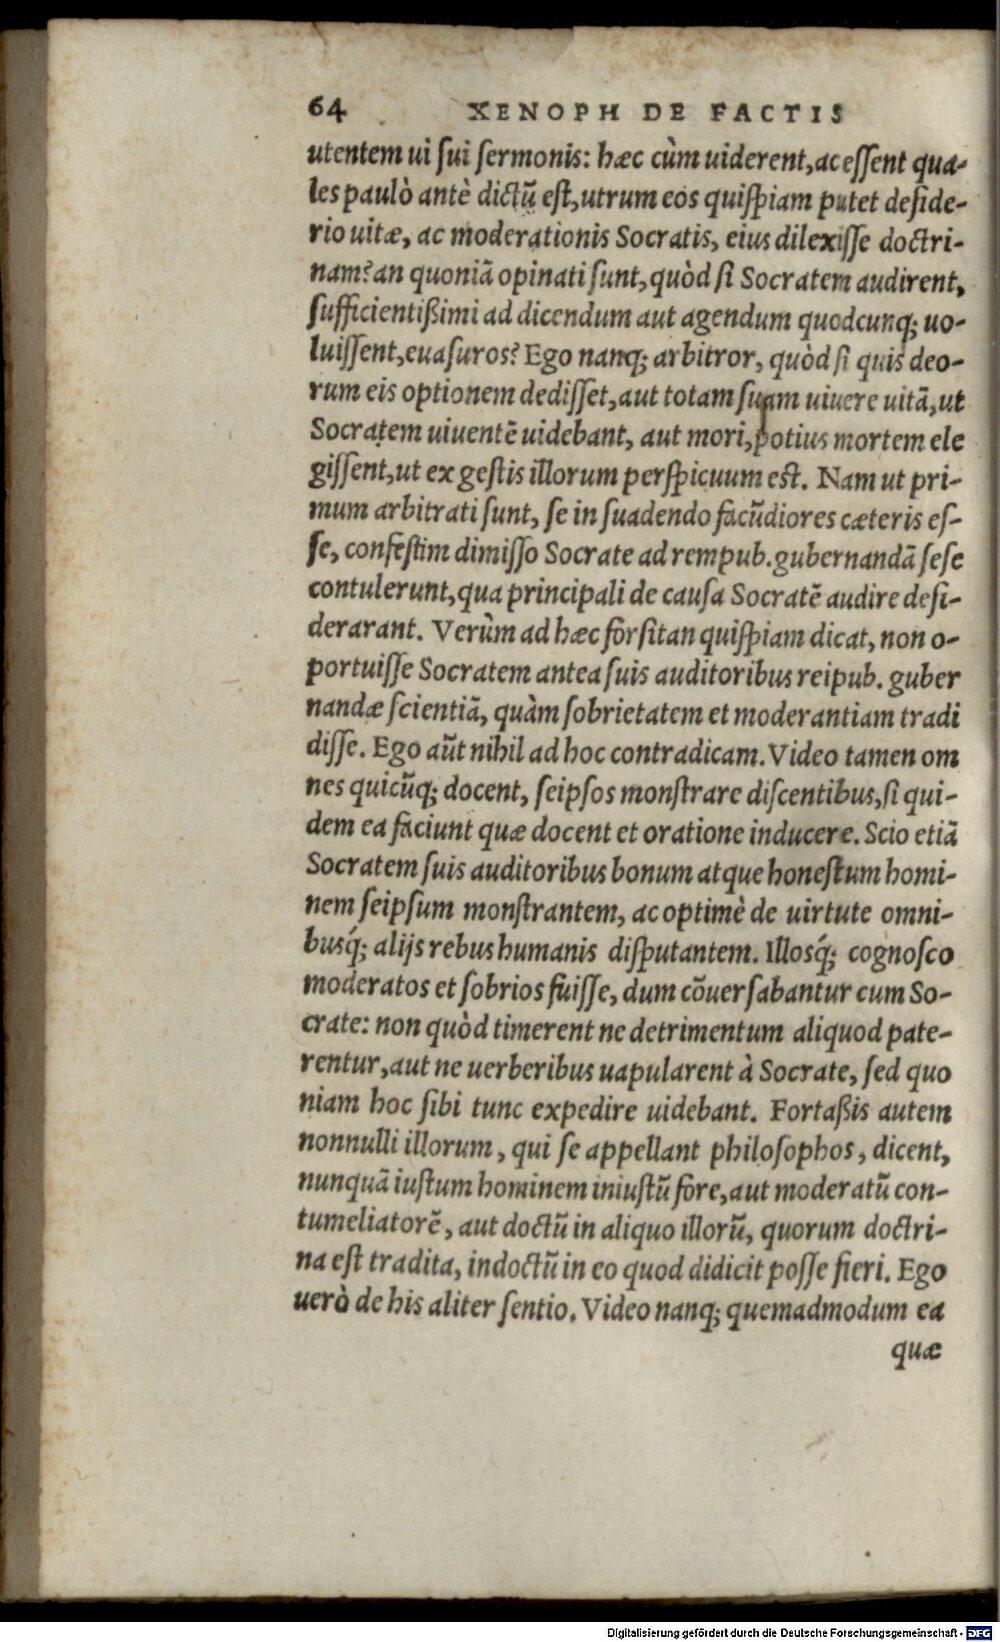 64 XENOPH DE FACTIS
utentem ui sui sermonis: hæc cùm uiderent, ac essent qua-
les paulò antè dictũ est, utrum eos quispiam putet deside-
rio uitæ, ac moderationis Socratis, eius dilexisse doctri-
nam? an quoniã opinati sunt, quòd si Socratem audirent,
sufficientißimi ad dicendum aut agendum quodcunq; uo-
luissent, euasuros? Ego nanq; arbitror, quòd si quis deo-
rum eis optionem dedisset, aut totam suam uiuere uitã, ut
Socratem uiuentẽ uidebant, aut mori, potius mortem ele
gissent, ut ex gestis illorum perspicuum est. Nam ut pri-
mum arbitrati sunt, se in suadendo facũdiores cæteris es-
se, confestim dimisso Socrate ad rempub. gubernandã sese
contulerunt, qua principali de causa Socratẽ audire desi-
derarant. Verùm ad hæc forsitan quispiam dicat, non o-
portuisse Socratem antea suis auditoribus reipub. guber
nandæ scientiã, quàm sobrietatem et moderantiam tradi
disse. Ego aũt nihil ad hoc contradicam. Video tamen om
nes quicũq; docent, seipsos monstrare discentibus, si qui-
dem ea faciunt quæ docent et oratione inducere. Scio etiã
Socratem suis auditoribus bonum atque honestum homi-
nem seipsum monstrantem, ac optimè de uirtute omni-
busq́; alijs rebus humanis disputantem. Illosq́; cognosco
moderatos et sobrios fuisse, dum cõuersabantur cum So-
crate: non quòd timerent ne detrimentum aliquod pate-
rentur, aut ne uerberibus uapularent à Socrate, sed quo
niam hoc sibi tunc expedire uidebant. Fortaßis autem
nonnulli illorum, qui se appellant philosophos, dicent,
nunquã iustum hominem iniustũ fore, aut moderatũ con-
tumeliatorẽ, aut doctũ in aliquo illorũ, quorum doctri-
na est tradita, indoctũ in eo quod didicit posse fieri. Ego
uerò de his aliter sentio. Video nanq; quemadmodum ea
quæ
Digitalisierung gefördert durch die Deutsche Forschungsgemeinschaft - DFG